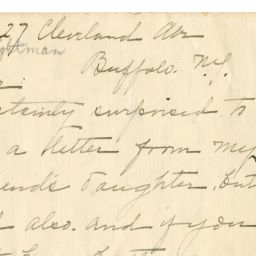 27 Cleveland Av
Buffalo. N.Y.
surprised to
a letter from my
daughter, but
also. and if you